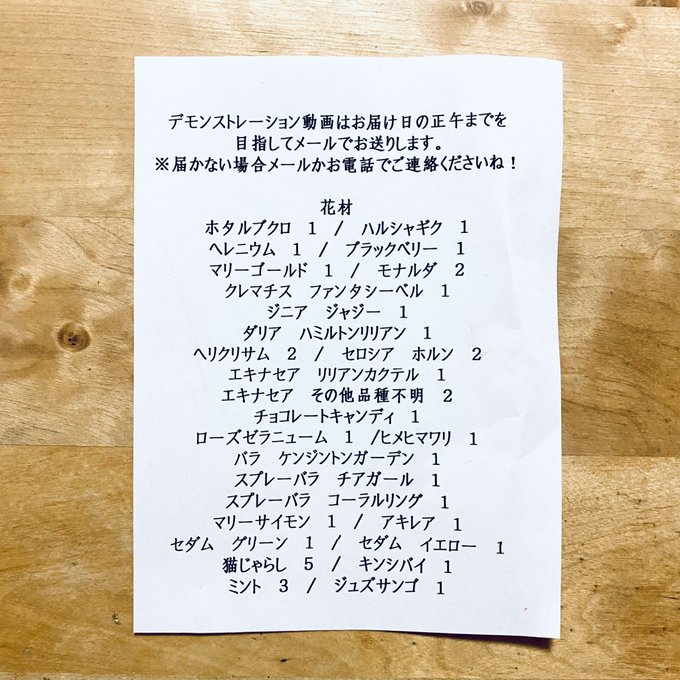 デモンストレーション動画はお届け日の正午までを
目指してメールでお送りします。
※届かない場合メールかお電話でご連絡くださいね！
花材
ホタルブクロ 1 / ハルシャギク 1
ヘレニウム 1 / ブラックベリー 1
マリーゴールド 1 / モナルダ 2
クレマチス ファンタシーベル 1
ジニア ジャジー 1
ダリア ハミルトンリリアン 1
ヘリクリサム 2 / セロシア ホルン 2
エキナセア リリアンカクテル 1
エキナセア その他品種不明 2
チョコレートキャンディ 1
ローズゼラニューム 1 /ヒメヒマワリ 1
バラ ケンジントンガーデン 1
スプレーバラ チアガール 1
スプレーバラ コーラルリング 1
マリーサイモン 1 / アキレア 1
セダム グリーン 1 / セダム イエロー 1
猫じゃらし 5 / キンシバイ 1
ミント 3 / ジュズサンゴ 1